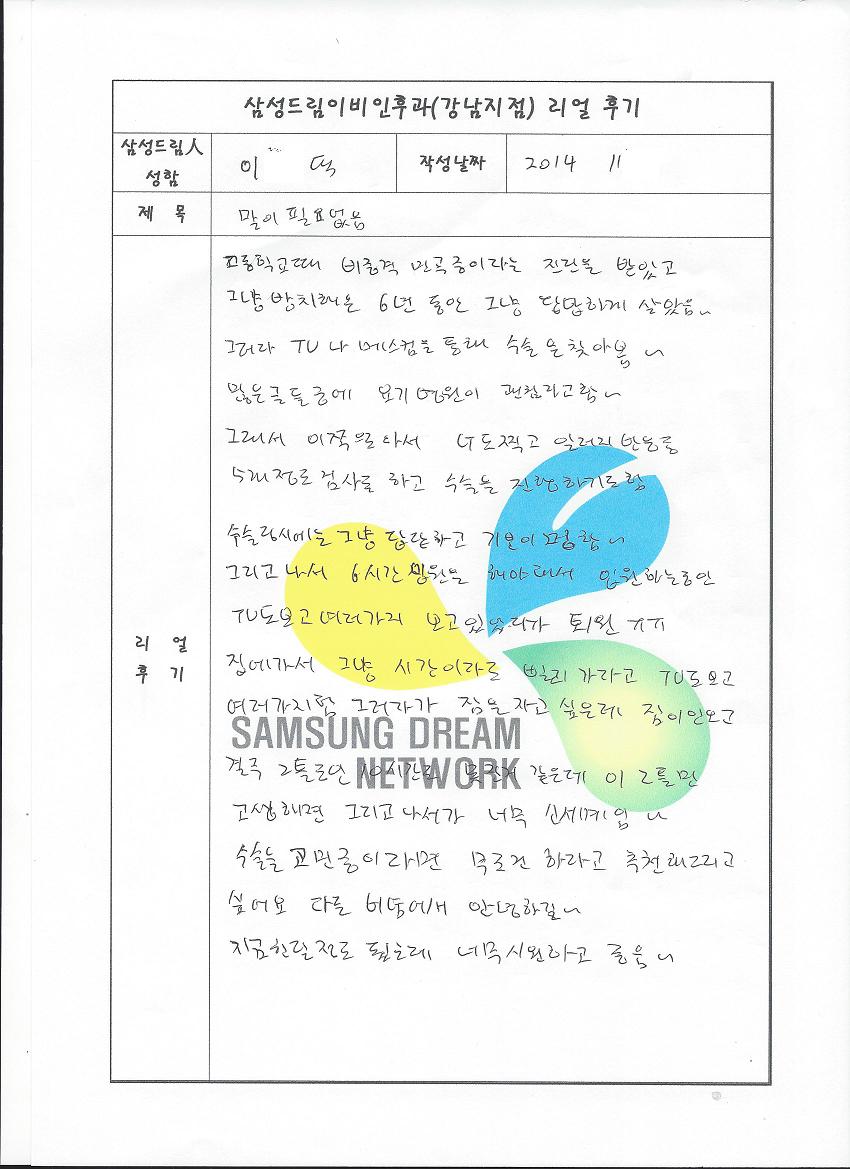 삼성드림이비인후과(강남지점) 리얼 후기
삼성드림人 성함
이 덕
작성날짜
2014 11
제 목
말이 필요없음
리 얼 후 기
고등학교때 비중격 만곡증이라는 진단을 받았고
그냥 방치해논 6년 동안 그냥 답답하게 살았음~
그러다 TV나 메스컴을 통해 수술을 찾아봄~
많은글들중에 요기병원이 괜찮다고함~
그래서 이쪽으로와서 CT도찍고 알러지 반응등
5개정도 검사를 하고 수술을 진행하기로함
수술당시에는 그냥 담담하고 기분이 평함~
그리고 나서 6시간 입원을 해야해서 입원하는동안
TV도보고 여러가지 보고있었다가 퇴원 ㅠㅠ
집에가서 그냥 시간이라도 빨리 가라고 TV도보고
여러가지함 그러다가 잠을 자고 싶은데 잠이안오고
결국 2틀동안 10시간도 못잔거 같은데 이 2틀만
고생하면 그리고나서가 너무 신세계임~
수술을 고민중이라면 무조건 하라고 추천해드리고
싶어요 다들 비염에게 안녕하길~
지금한달정도 됬는데 너무시원하고 좋음~
SAMSUNG DREAM
NETWORK